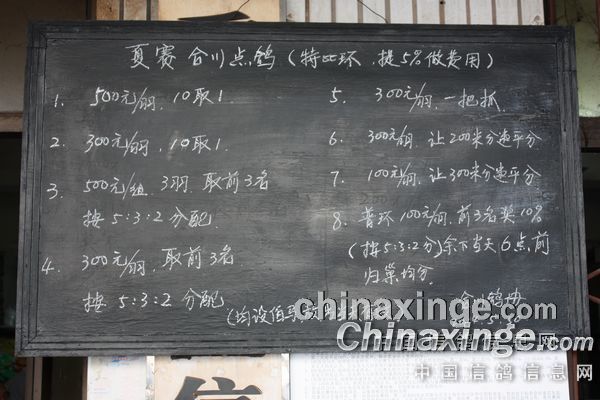 夏赛 合川点鸽(特比环、提5%做费用)
1. 500元/羽, 10取1.
2. 300元/羽, 10取1.
3. 500元/组. 3羽. 取前3名
按 5:3:2 分配.
4. 300元/羽, 取前3名
按 5:3:2 分配
5. 300元/羽, 一把抓.
6. 300元/羽, 让200米分速平分
7. 100元/羽, 让300米分速平分
8. 普环100元/羽, 前3名奖10%
(按5:3:2分)余下当天6点前
归巢均分.
(均设伯
合川鸽协
chinaxinge.com
Chinaxinge.com
中国信鸽信息网
中国信鸽信息网
信